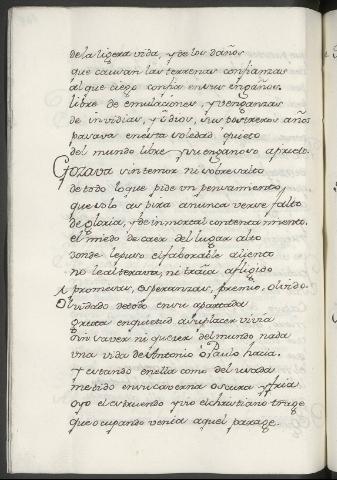 de la ligera vida, y de los daños
que causan las terrenas confianzas
al que ciego confia en sus engaños.
libre de emulaciones, y venganzas
de invidias, y odios, sus postreros años
pasava en esta soledad quieto
del mundo libre y su engañoso aprieto.
Gozava sin temor ni sobresalto
de todo lo que pide un pensamiento
que solo aspira a nunca verse falto
de gloria, y de inmortal contentamiento.
el miedo de caer del lugar alto
donde le puso el faborable aliento
no le alterava, ni traia afligido
promesas, esperanzas, premio, olvido.
Olvidado de todo en su apartada
gruta en quietud a su placer vivia
sin saver ni querer del mundo nada
una vida de Antonio o Paulo hacia.
y estando en ella como del usada
metido en su caverna oscura y fria
oyo el estruendo y vio el christiano trage
que ocupando venia aquel parage.